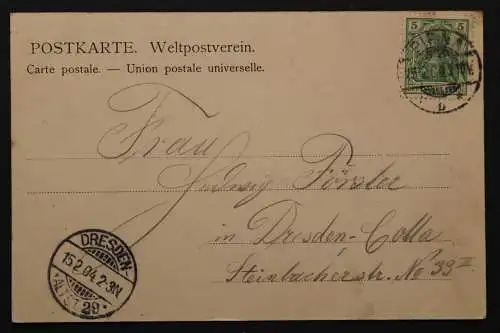 POSTKARTE. Weltpostverein.
Carte postale. — Union postale universelle.
5 5
Frau
Ludwig Förster
in Dresden-Cotta
Steinbacherstr. No 33 II
DRESDEN-
15.2.04. 2-3N.
ALTST. 29
b